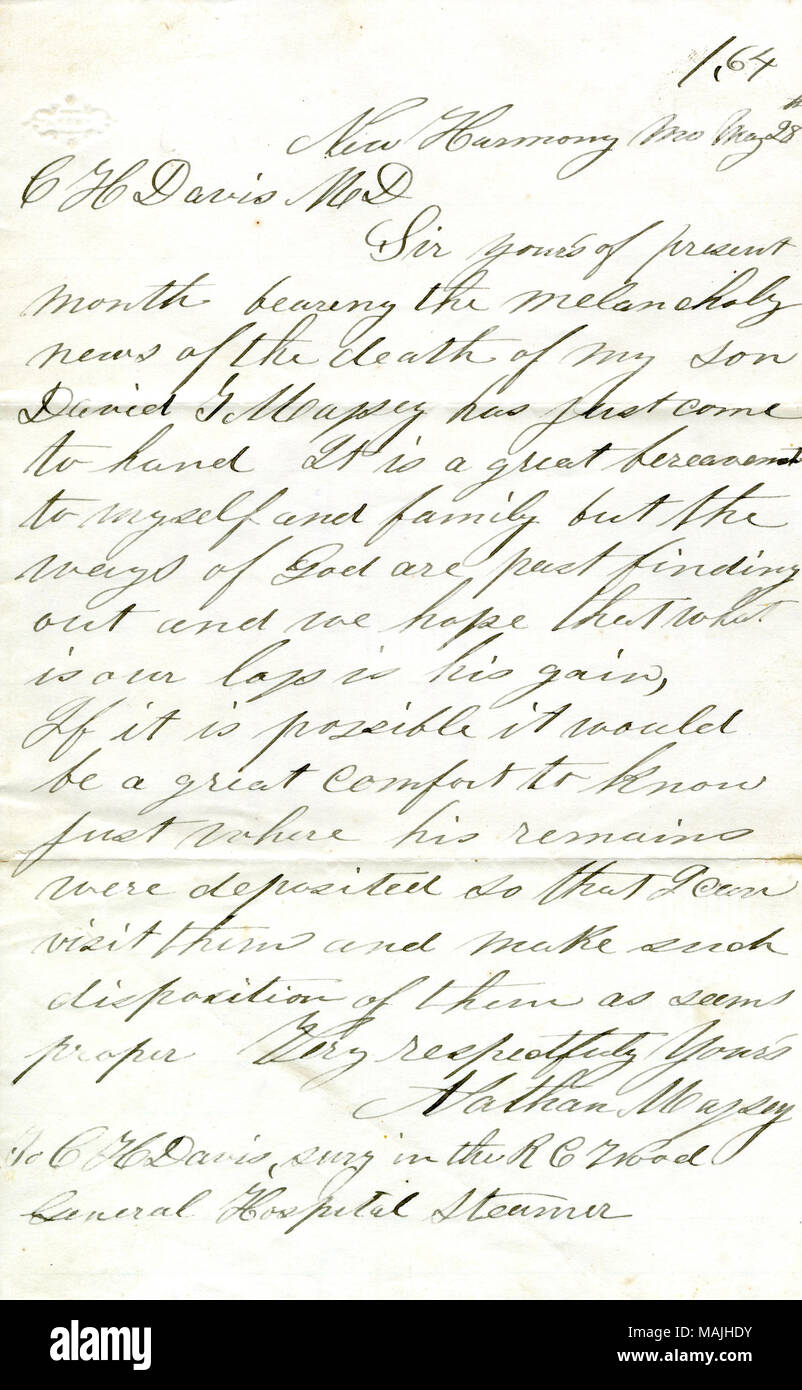 1,64
New Harmony Mo May 28th
C H Davis M D
Sir yours of present
month bearing the melancholy
news of the death of my son
David G Massey has just come
to hand It is a great bereavement
to myself and family but the
ways of God are past finding
out and we hope that what
is our loss is his gain,
If it is possible it would
be a great comfort to know
just where his remains
were deposited so that I can
visit them and make such
disposition of them as seems
proper Very respectfuly Yours
Nathan Massey
To C H Davis, surg in the R C Wood
General Hospital Steamer
alamy
Image ID: MAJHDY
www.alamy.com